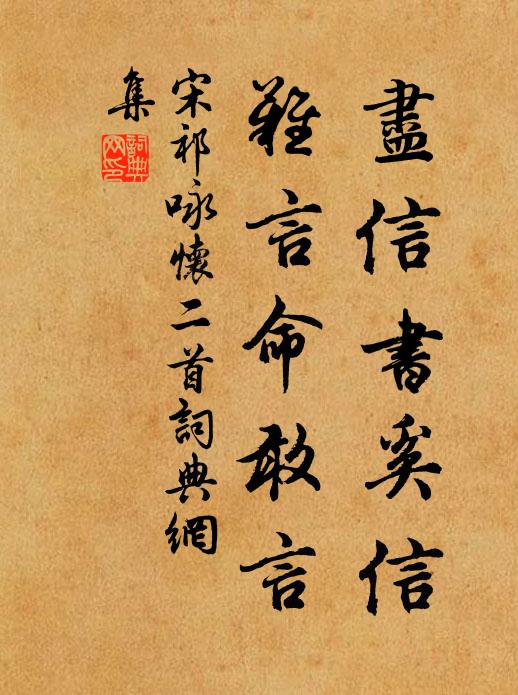 盡信書奚信
難言命敢言
宋祁咏懷二首詞典網
集
詞典網印